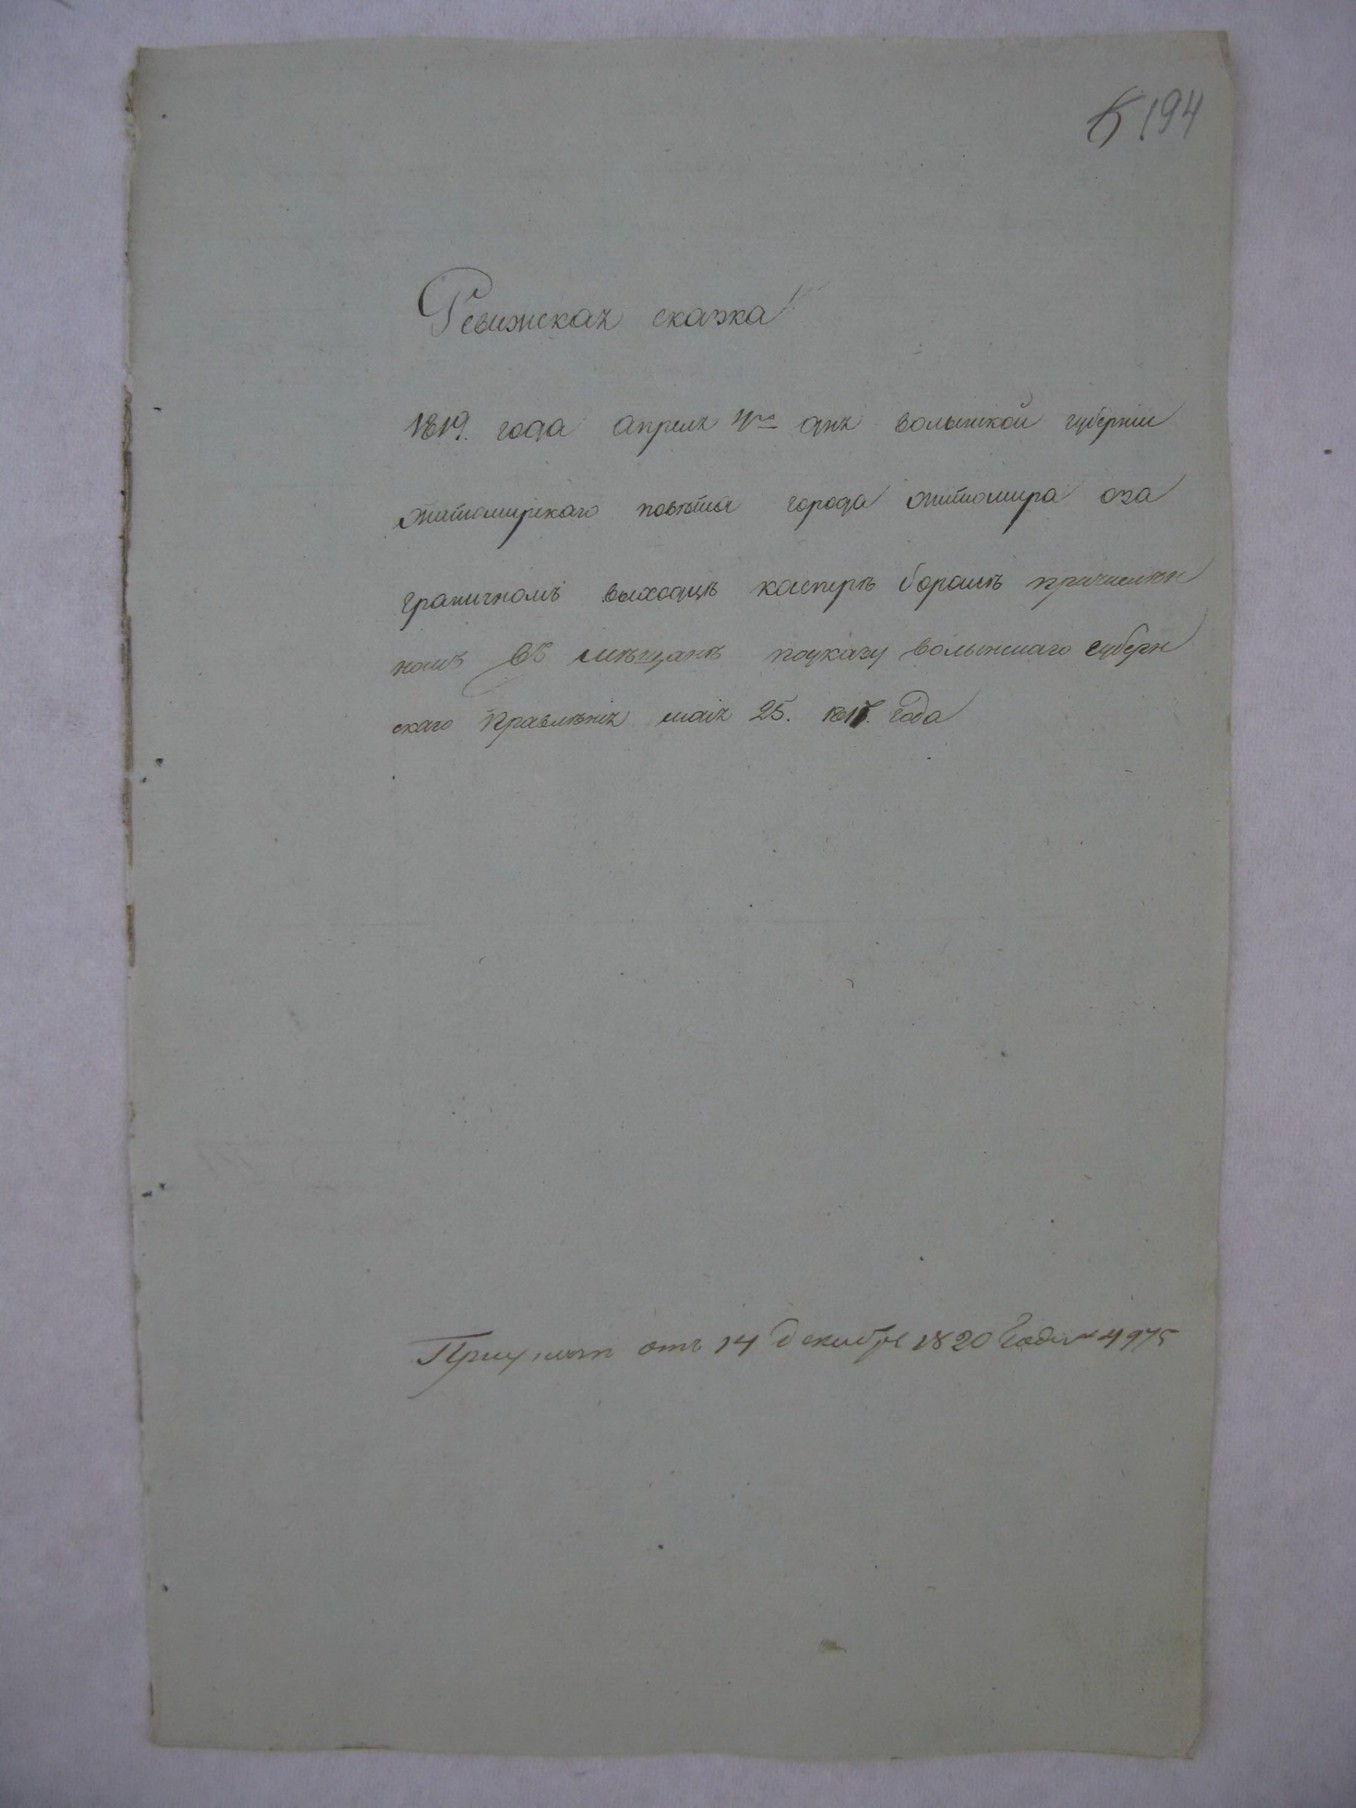 194
Ревижская сказка
1819. года апреля 4го дня волынской губернии
житомирскаго повѣта города житомира оза
граничномъ выходцѣ касперѣ борашѣ причислен
номъ въ мѣщанѣ поуказу волынскаго губерн
скаго правлѣния маия 25. года
отъ 14 декабря 1820 Года № 4975